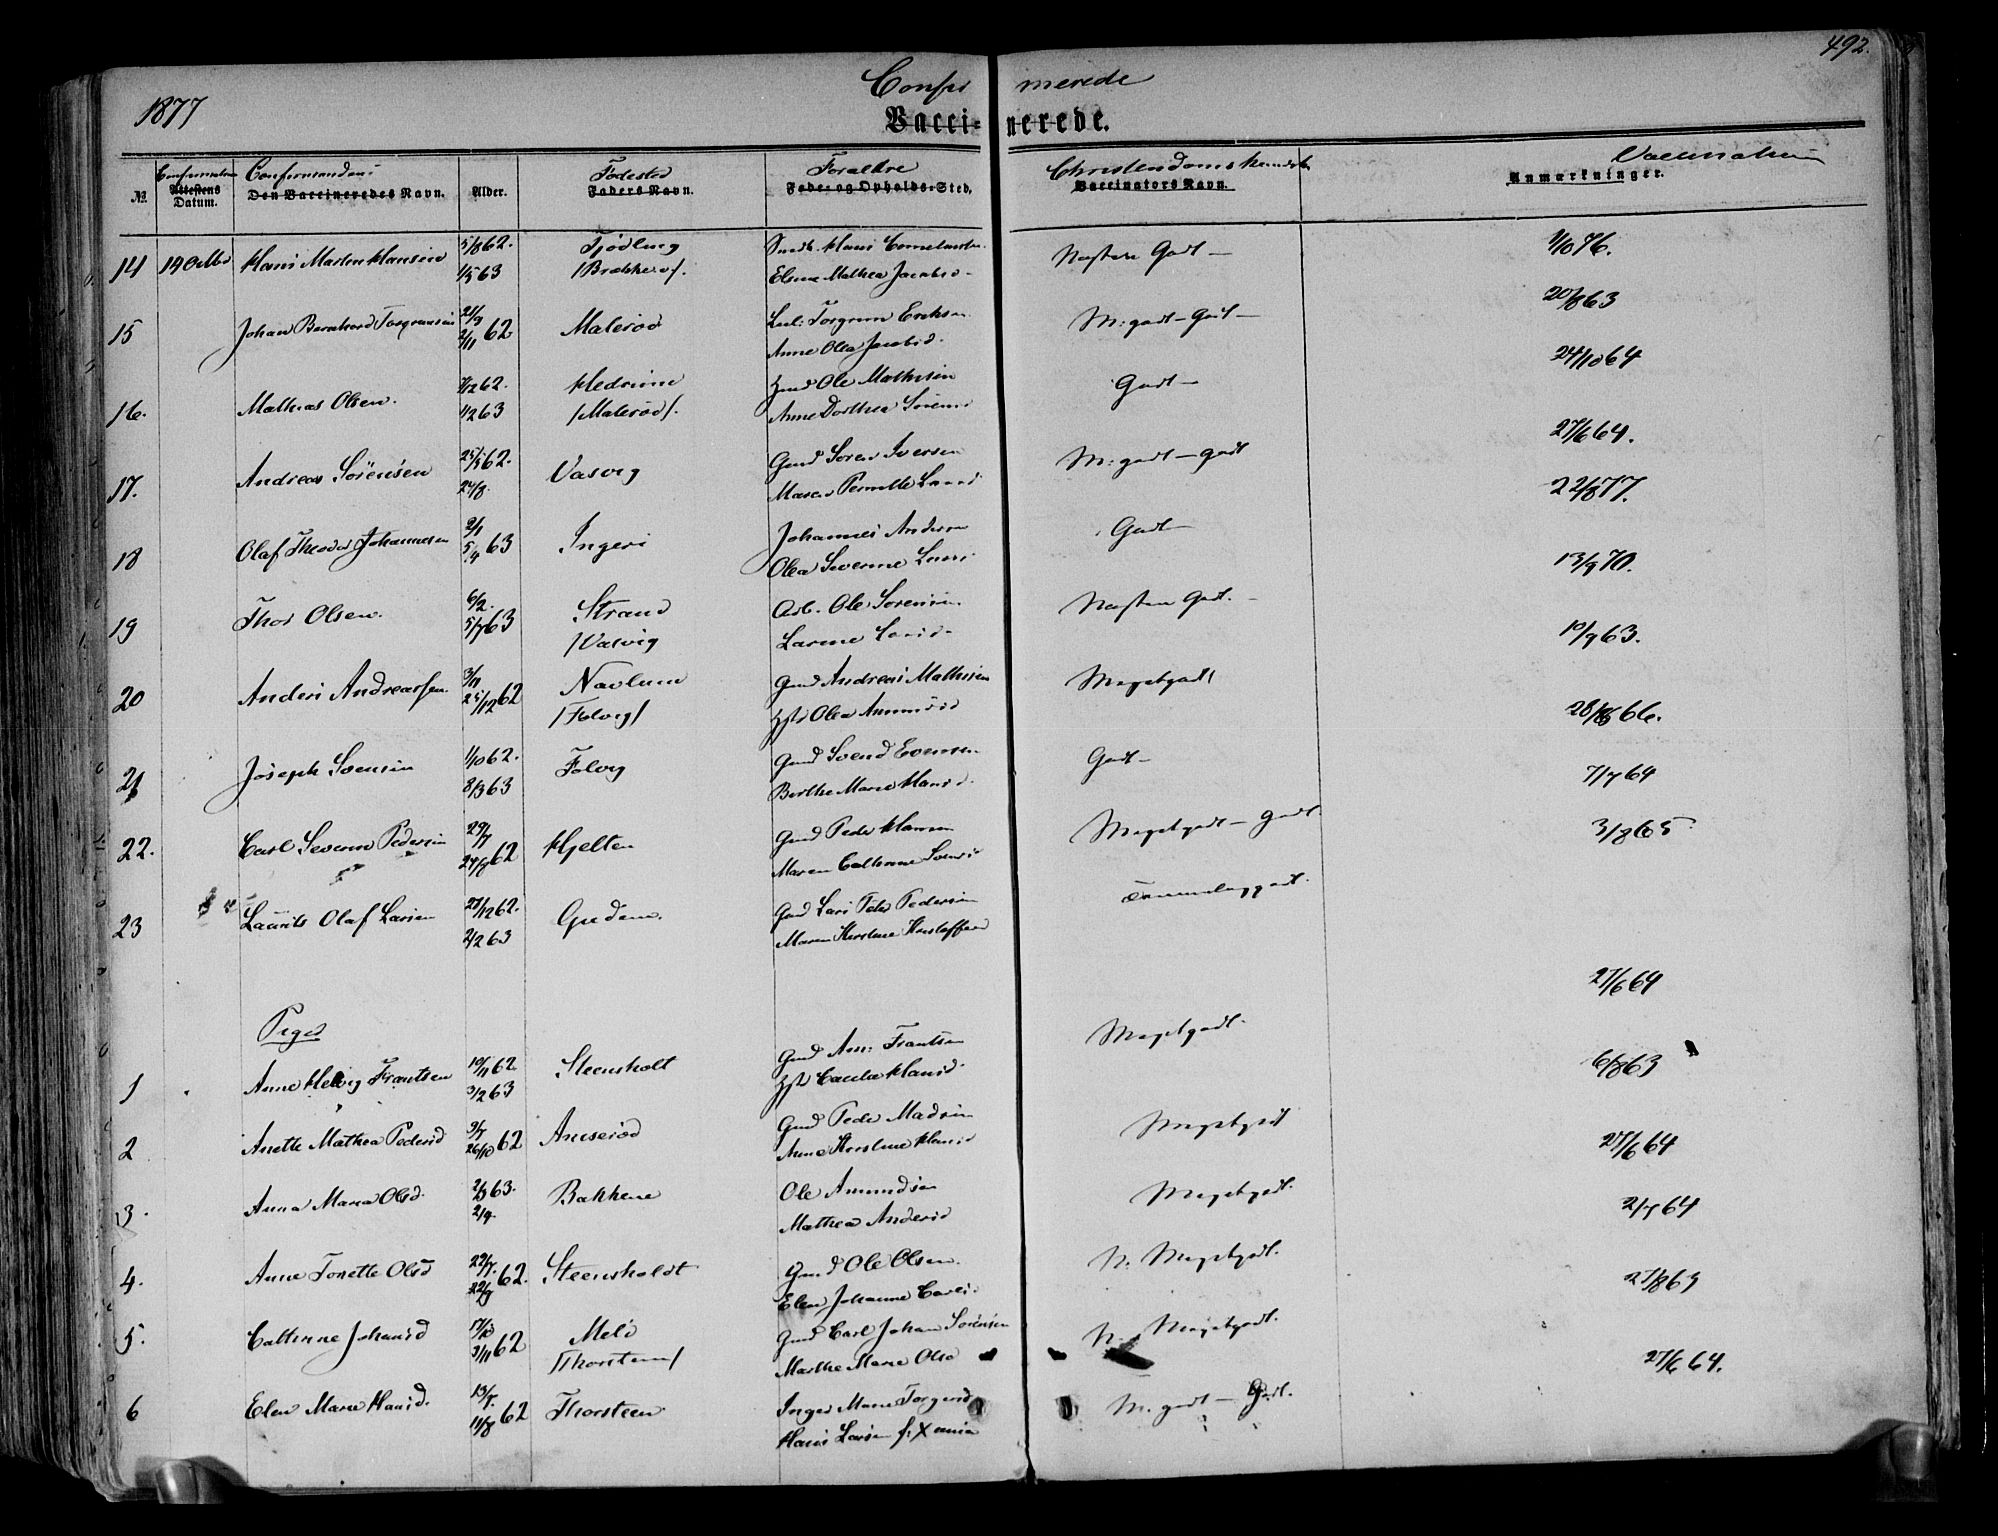 492.
1877
Confir merede
Vacci= nerede.
Confirmations Confirmandens Födested Forældre Christendoms Kundsk. Vaccination
No. Attestens Datum. Den Vaccineredes Navn. Alder. Faders Navn. Føde- og Opholds-Sted. Vaccinators Navn. Anmærkninger.
14 14 Octbr Hans Martin Hansen 5/8 62. Tjödling Hans Næsten Godt — 1/10 76.
1/5 63 Elsine Mathea Jacobsd.
15 Johan Bernhard Torgrimsen 21/9 Malerød Torgrim Eriksen M: godt – Godt — 20/8 63
2/11 62 Anne Olea Jacobsd.
16. Mathias Olsen. 7/12 62. Hedrum Ole Mathisen Godt — 24/10 64
1/2 63 /Malerød/. Anne Dorthea Sörensd
17. Andreas Sörensen 25/5 62. Vasvig Gmd Soren Iversen M: godt – godt 27/6 64.
24/8. Maren Pernille Larsd
18 Olaf Theodor Johannesen 2/1 Ingeri Johannes Andersen Godt — 22/8 77.
5/4 63 Olea Severine Larsd
19 Thor Olsen. 6/2. Strand Arb. Ole Sorensen. Næsten Godt. — 13/9 70.
5/7 63 /Vasvig Larine Larsd.
20 Anders Andreassen. 3/11 Navlum Gmd Andreas Mathisen Megetgodt 10/9 63.
25/12 62 /Folvig/ Hst Olea Amundsd
21 Joseph Svensen 1/10 62. Folvig Gmd Svend Evensen Godt — 28/8 66.
8/3 63 Berthe Marie Hansd.
22. Carl Severin Pedersen 29/7 Hjelten Gmd Peder Hansen Megetgodt – godt. 7/7 64
24/8 62 Maren Cathrine
23 Laurits Olaf Larsen 27/12 62. Gudem. Gmd Lars Peter Pedersen Temmeliggodt. 3/8 65
2/2 63 Maren Kirstine Kristoffersd
Piger
1 Anne Helvig Frantsen 19/11 62. Steensholt Gmd And: Frantsen Megetgodt. 27/6 64
3/2 63 Hst Cacilia Hansd.
2 Anette Mathea Pedersd 9/7 Amserød Gmd Peder Madsen Megetgodt 6/8 63
26/10 62 Anne Kirstine Hansd
3. Anna Maria Olsd. 2/3 63. Bakkene Ole Amundsen Megetgodt. 27/6 64
2/4. Mathea Andersd
4. Anne Tonette Olsd 22/7. Steensholdt Gmd Ole Olsen. N. Megetgodt. 2/7 64
22/9 62. Elen Johanne
5. Cathrine Johansd 17/8 Melö Gmd Carl Johan Sörensen N. Megetgodt. 27/8 63
3/11 62 /Thorsteen/ Marthe Marie Olsd
6 Elen Marie Hansd. 13/7. Thorsteen Inger Marie Torgersd M. godt – Godt. 27/6 64.
11/8 62 Hans Larsen f: Xania